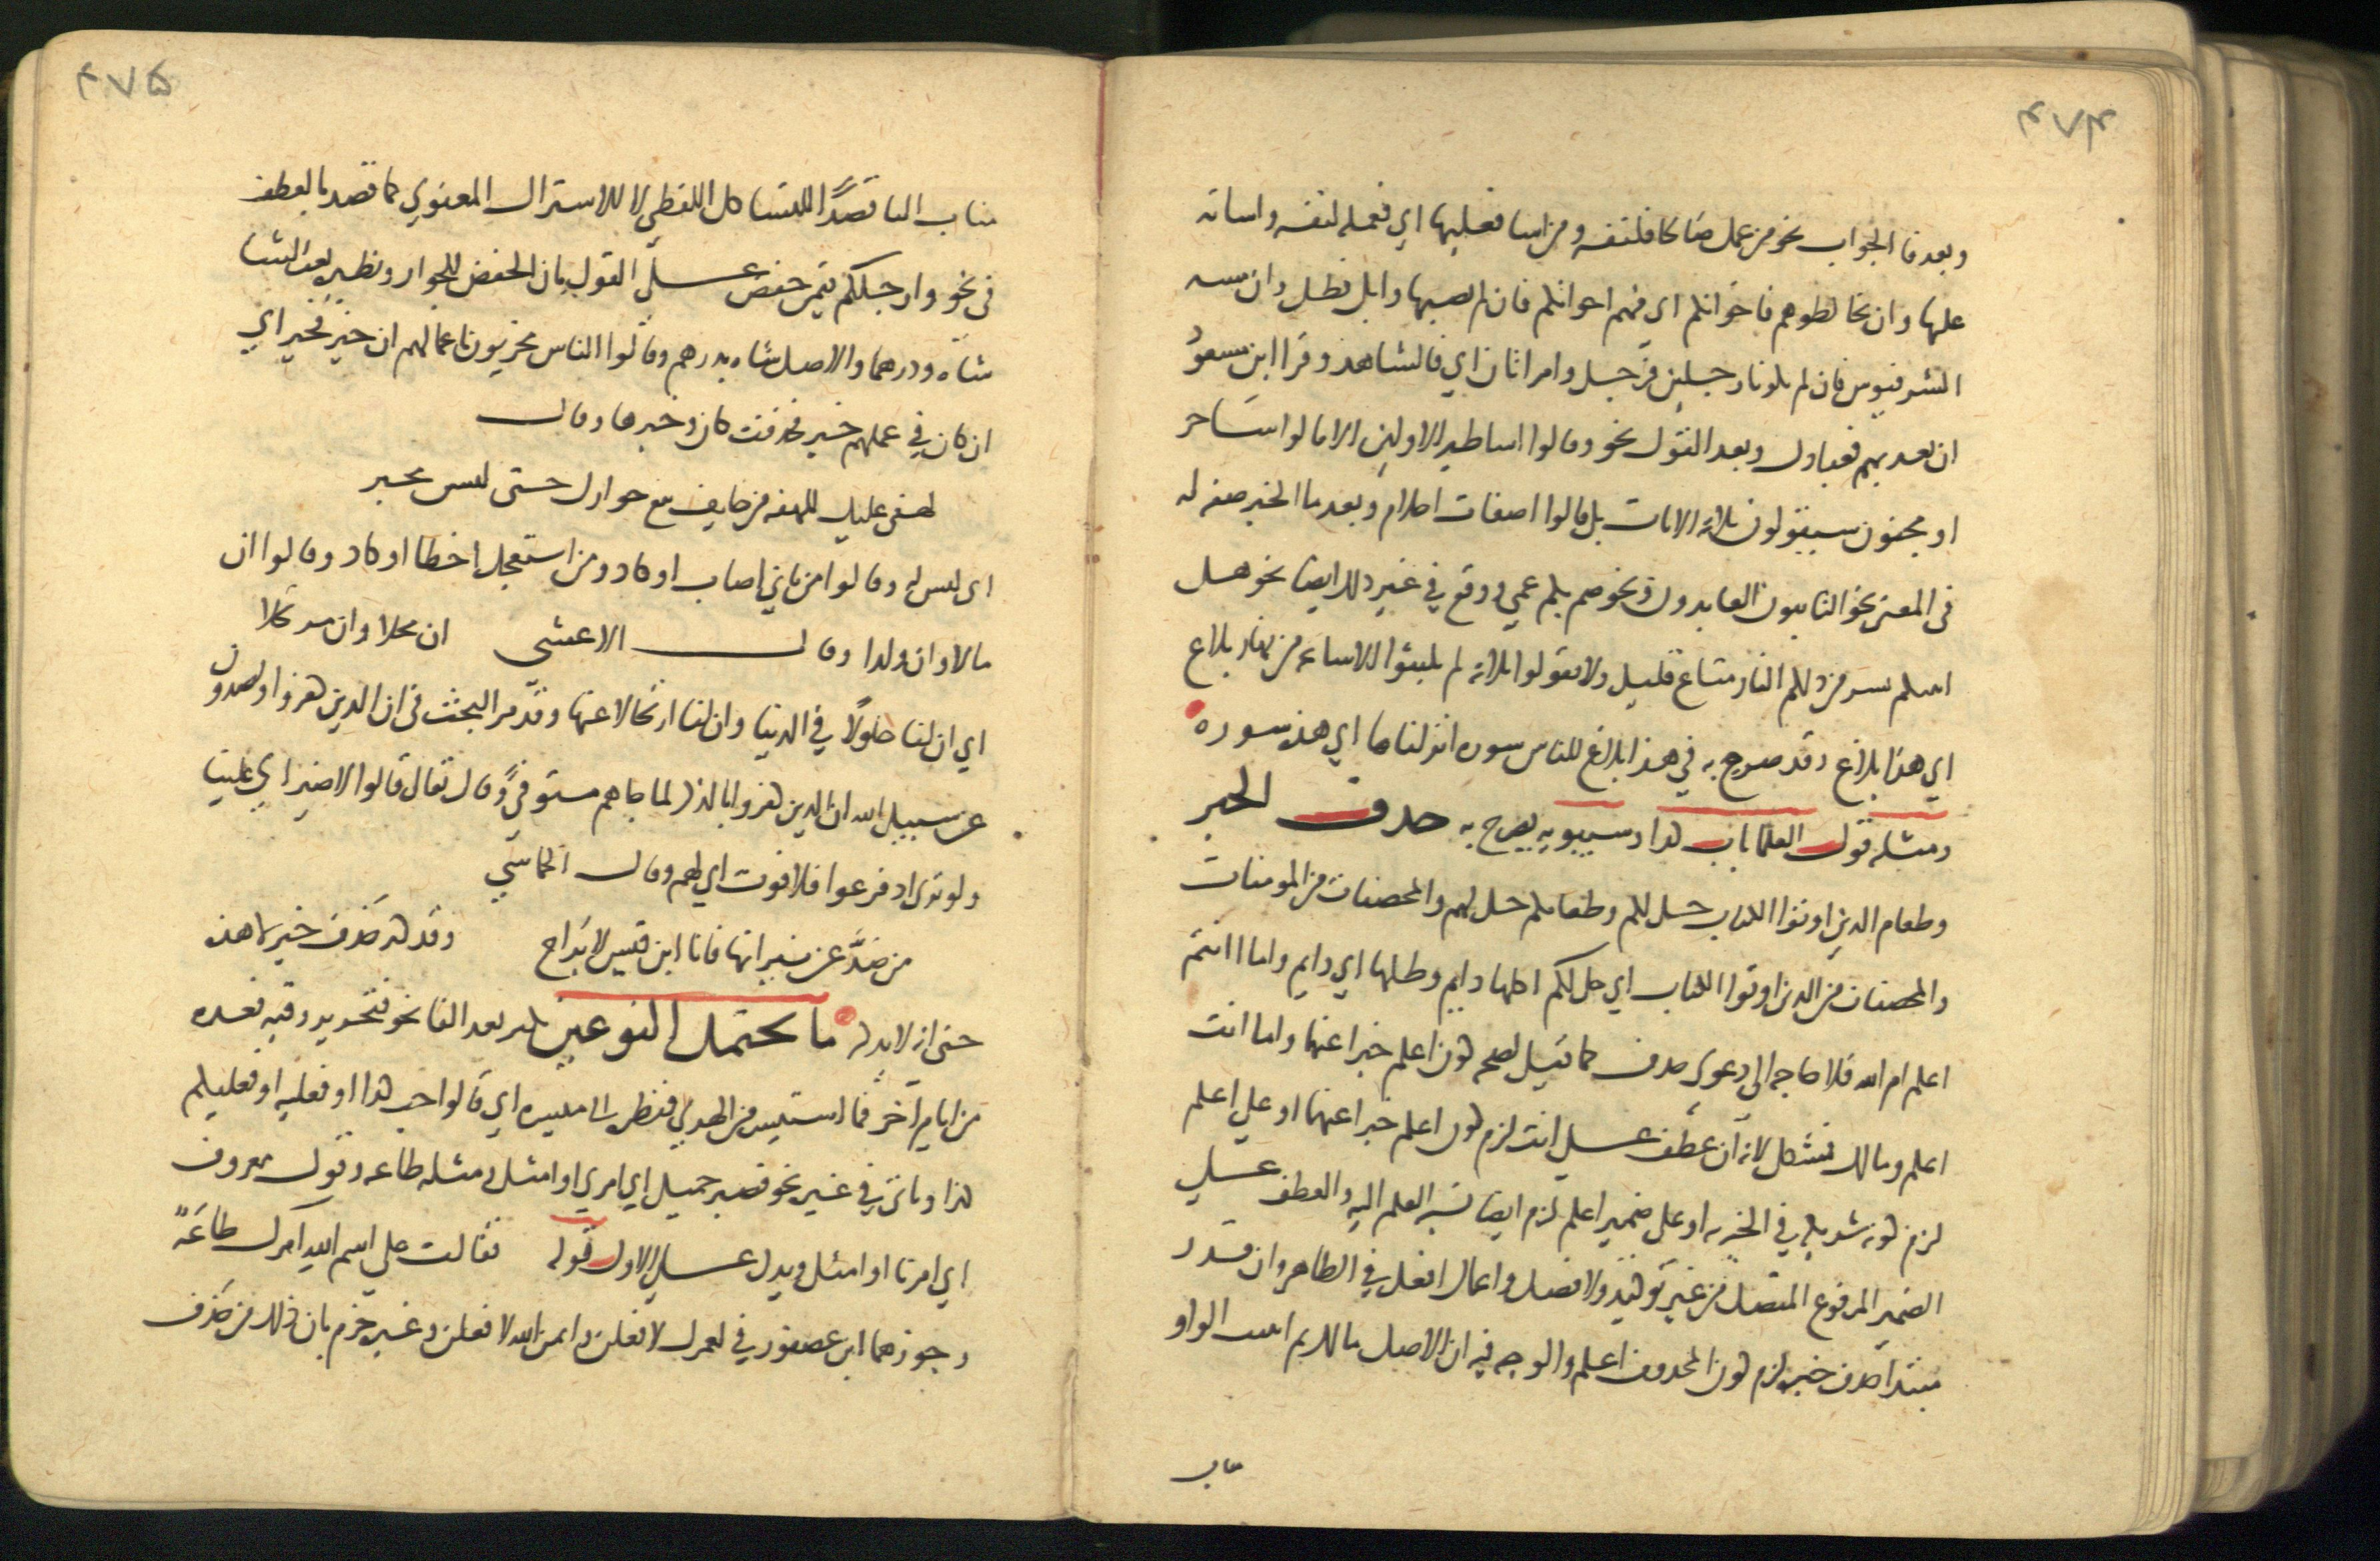 ٤٧٤
وبعد فا الجواب نحو من عمل صالحا فلنفسه ومن اسا فعليها اي فعمله لنفسه واساته
عليها وان تخالطوهم فاخوانكم اي فهم اخوانكم فان لم يصبها وابل فطل وان مسه
الشر فيوس فان لم يكونا رجلين فرجل وامراتان اي فالشاهد وقرا ابن مسعود
ان تعذبهم فعبادك وبعد القول نحو وقالوا اساطير الاولين الا قالوا ساحر
او مجنون سيقولون ثلاثه الايات بل قالوا اضغاث احلام وبعد ما الخبر صفه له
في المعنى نحو التايبون العابدون ونحو صم بكم عمي ووقع في غير ذلك ايضا نحو هل
انبيكم بشر من ذلكم النار متاع قليل ولا تقولوا ثلاثه لم يلبثوا الا ساعه من نهار بلاغ
اي هذا بلاغ وقد صرح به في هذا بلاغ للناس سوره انزلناها اي هذه سوره
ومثله قول العلما باب كذا وسيبويه يصرح به حذف الخبر
وطعام الذين اوتوا الكتاب حل لكم وطعامكم حل لهم والمحصنات من المومنات
والمحصنات من الذين اوتوا الكتاب اي حل لكم اكلها دايم وظلها اي دايم واما اانتم
اعلم ام الله فلا حاجه الى دعوى حذف كما قيل لصحه كون اعلم خبرا عنهما واما انت
اعلم ومالك فمشكل لانه ان عطف على انت لزم كون اعلم خبرا عنهما او على اعلم
لزم كونه شريكه في الخبريه او على ضمير اعلم لزم ايضا نسبه العلم اليه والعطف على
الضمير المرفوع المتصل من غير توكيد ولا فصل واعمال افعل في الظاهر وان قدر
مبتدا حذف خبره لزم كون المحذوف اعلم والوجه فيه ان الاصل بمالك ثم انيبت الواو
مناب
٤٧٥
مناب البا قصدًا للتشاكل اللفظي لا للاشتراك المعنوي كما قصد بالعطف
في نحو وارجلكم فيمن خفض على القول بان الخفض للجوار ونظيره بعت الشا
شاه ودرهما والاصل شاه بدرهم وقالوا الناس مجزيون باعمالهم ان خير فخير اي
ان كان في عملهم خير فحذفت كان وخبرها وقال
لهفي عليك للهفه من خايف يبغي جوارك حين ليس مجير
اي ليس له وقالوا من تاني اصاب او كاد ومن استعجل اخطا او كاد وقالوا ان
مالا وان ولدا وقال الاعشي ان محلا وان مرتحلا
اي ان لنا حلولًا في الدنيا وان لنا ارتحالا عنها وقد مر البحث في ان الذين كفروا ويصدون
عن سبيل الله ان الذين كفروا بالذكر لما جاهم مستوفيً وقال تعالى قالوا لا ضير اي علينا
ولو ترى اذ فزعوا فلا فوت اي لهم وقال الحماسي
من صدّ عن نيرانها فانا ابن قيس لا براح وقد كثر حذف خبر لا هذه
حتى انه لا يذكر ما يحتمل النوعين يكثر بعد الفا نحو فتحرير رقبه فعده
من ايام اخر فما استيسر من الهدي فنظره الى ميسره اي فالواجب كذا او فعليه او فعليكم
كذا وياتي في غيره نحو فصبر جميل اي امري او امثل ومثله طاعه وقول معروف
اي امرنا او امثل ويدل على الاول قوله فقالت على اسم الله امرك طاعةً
وجوزهما ابن عصفور في لعمرك لافعلن وايمن الله لافعلن وغيره جزم بان ذلك من حذف